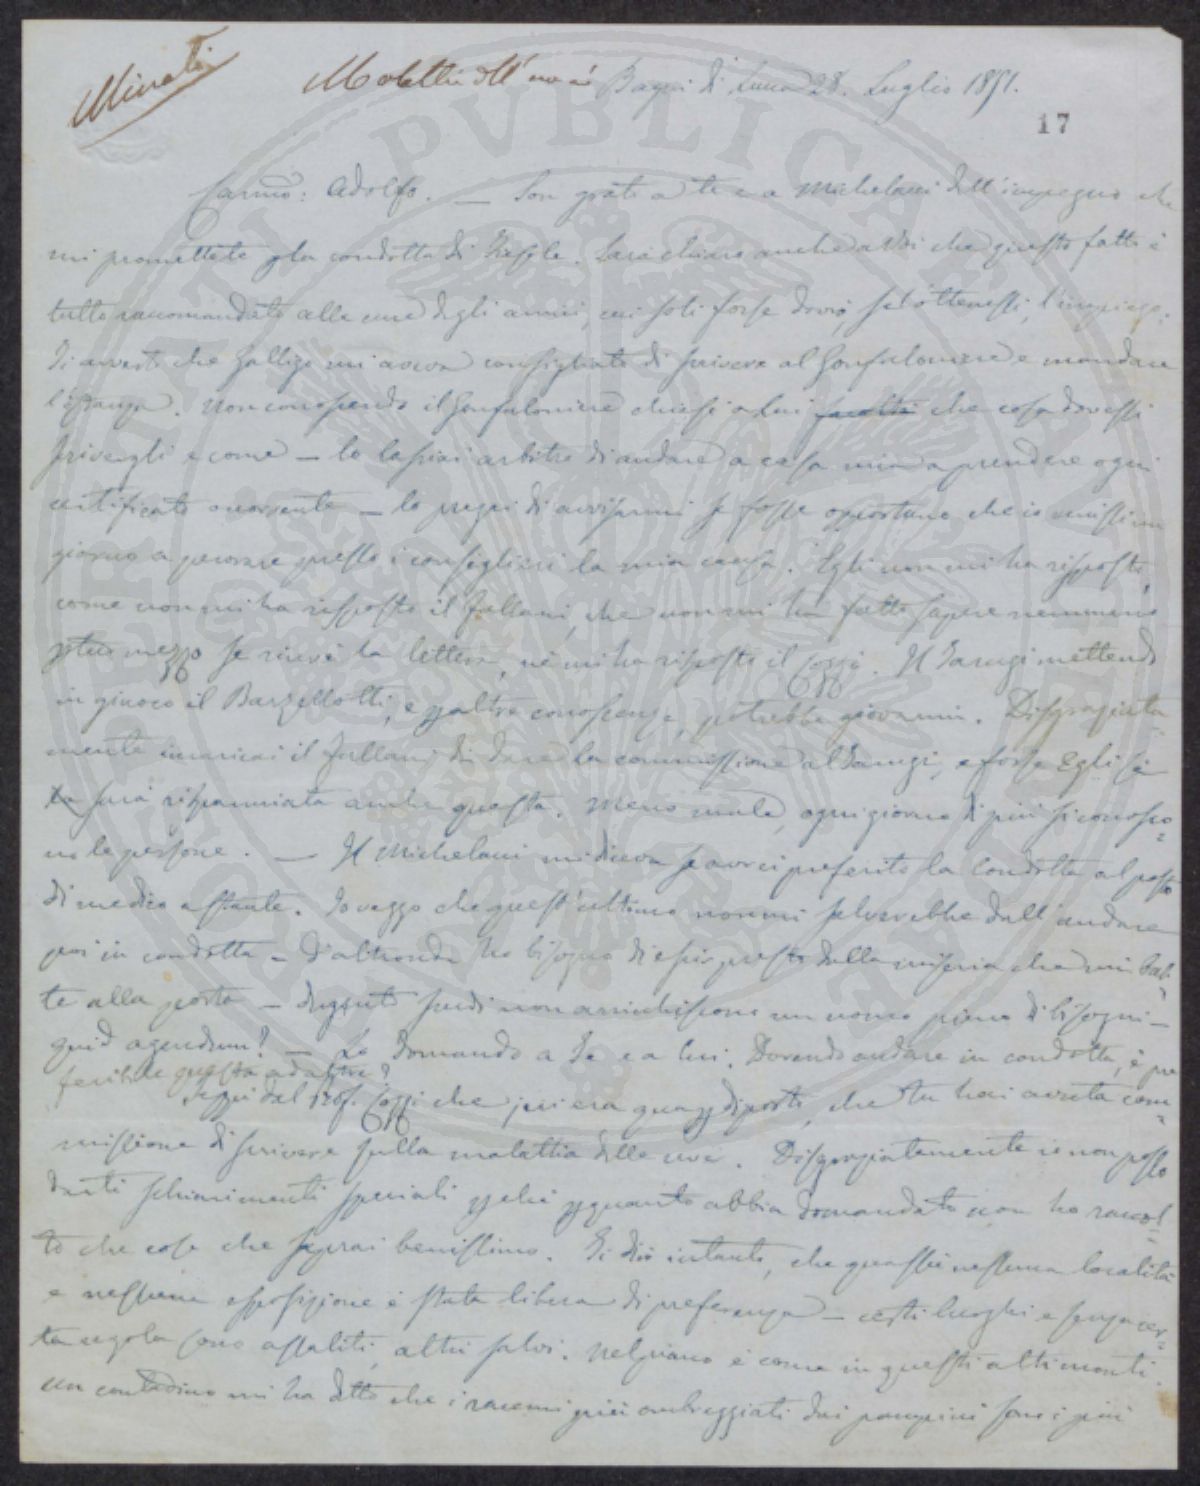 Minati
Malattia dell'uva
Bagni di Lucca 28. Luglio 1851.
17
Carmo: Adolfo. — Son grato a te e a Michelacci dell'impegno che
mi promettete p la condotta di Fiesole. Sarà chiaro anche a Voi che questo fatto è
tutto raccomandato alle cure degli amici, cui soli forse dovrò, se l'ottenessi, l'impiego.
Ti avverto che Galligo mi aveva consigliato di scrivere al Gonfaloniere e mandare
l'istanza. Non conoscendo il Gonfaloniere chiesi a lui che cosa dovessi
scrivergli e come — lo lasciai arbitro di andare a casa mia a prendere ogni
certificato occorrente — lo pregai di avvisarmi se fosse opportuno che io venissi un
giorno a perorare presso i consiglieri la mia causa. Egli non mi ha risposto,
come non mi ha risposto il Fallani, che non mi ha fatto sapere nemmeno
p tuo mezzo se ricevè la lettera, nè mi ha risposto il Cozzi. Il Tarugi mettendo
in giuoco il Barzellotti, e p altre conoscenze, potrebbe giovarmi. Disgraziata-
mente incaricai il Fallani di dare la commissione al Tarugi, e forse Egli se
la sarà risparmiata anche questa. Meno male, ogni giorno di più si conosco-
no le persone. — Il Michelacci mi diceva se avrei preferito la Condotta al posto
di medico astante. Io veggo che quest'ultimo non mi salverebbe dall'andare
poi in condotta — D'altronde ho bisogno di escir presto dalla miseria che mi bat-
te alla porta — dugento scudi non arricchiscono un uomo pieno di bisogni —
quid agendum? — Lo domando a Te e a lui. Dovendo andare in condotta, è pre
feribile questa ad altre?
Seppi dal Prof. Cozzi che jeri era qua p diporto, che tu hai avuta com-
missione di scrivere sulla malattia delle uve. Disgraziatamente io non posso
darti schiarimenti speciali p chè p quanto abbia domandato non ho raccol-
to che cose che saprai benissimo. Ti dirò intanto, che quassù nessuna località
e nessuna esposizione è stata libera di preferenza — certi luoghi e senza cer-
ta regola sono assaliti, altri salvi. Nel piano è come in questi alti monti.
un contadino mi ha detto che i racemi più ombreggiati dai pampini sono i più